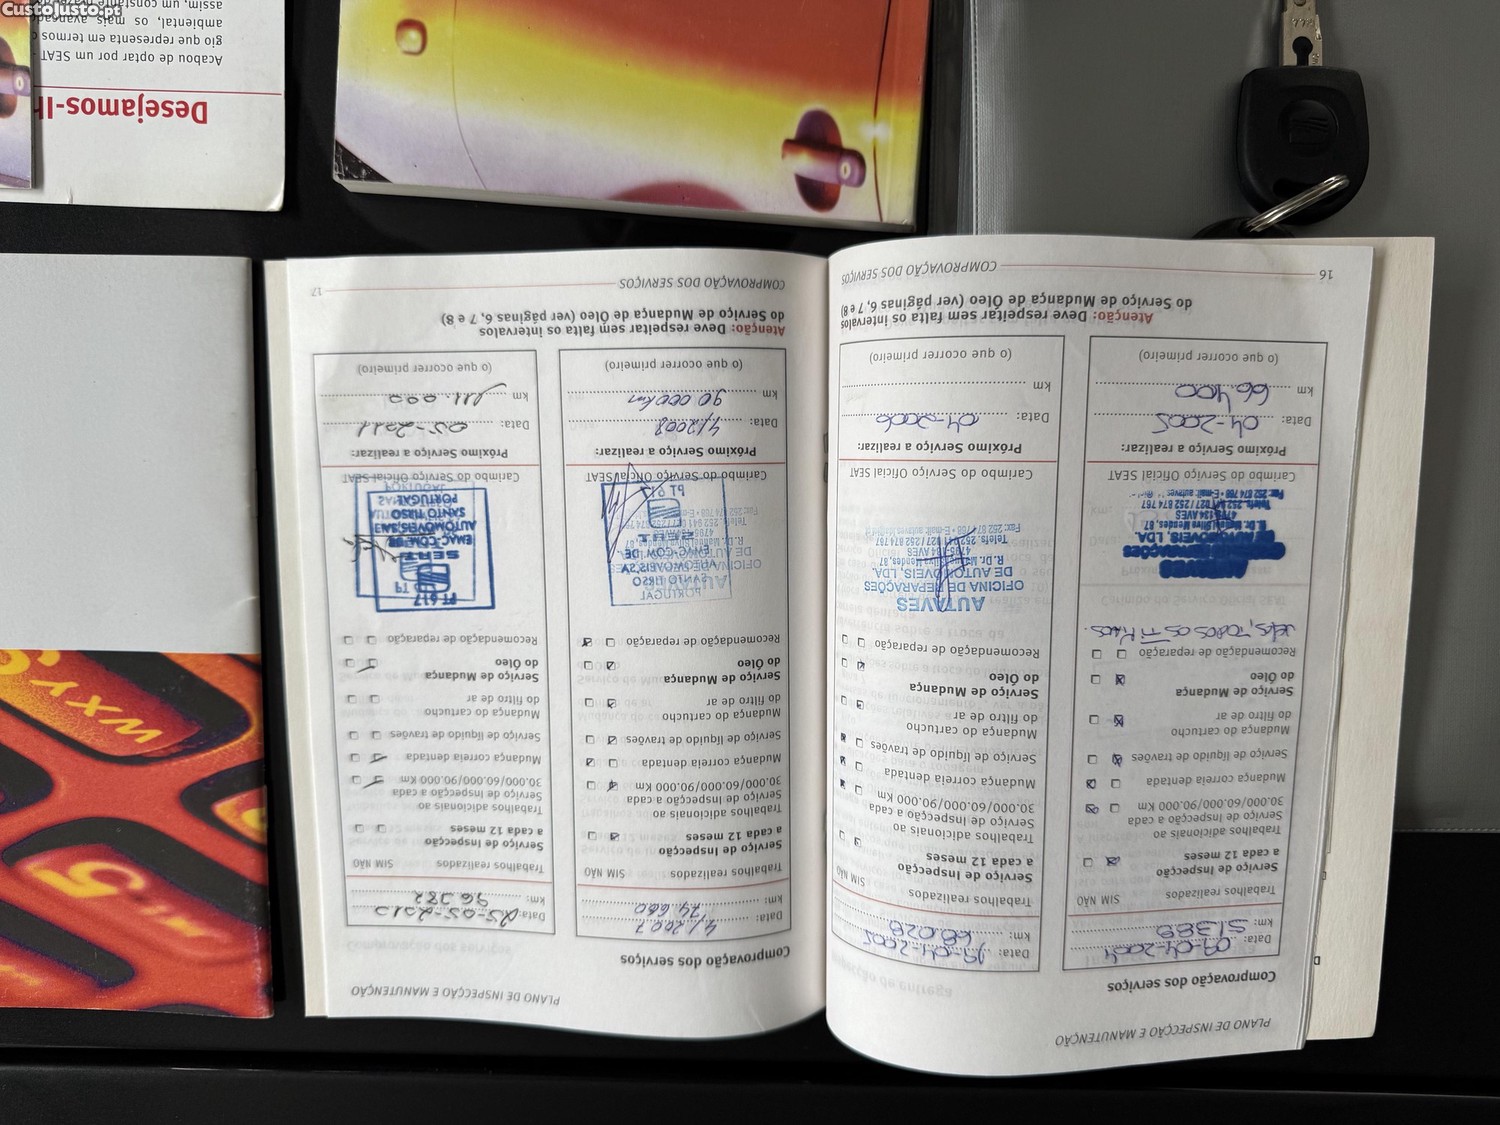 CustoJusto.pt
Desejamos-lh
Acabou de optar por um SEAT
gio que representa em termos
ambiental, os mais avançad
assim, um constante
PLANO DE INSPECÇÃO E MANUTENÇÃO
Comprovação dos serviços
Data: 09-04-2004
km: 51.389
Trabalhos realizados SIM NÃO
Serviço de Inspecção
a cada 12 meses
Trabalhos adicionais ao
Serviço de Inspecção a cada
30.000/60.000/90.000 Km
Mudança correia dentada
Serviço de líquido de travões
Mudança do cartucho
do filtro de ar
Serviço de Mudança
do Óleo
Recomendação de reparação
Carimbo do Serviço Oficial SEAT
Próximo Serviço a realizar:
Data: 04-2005
km 66.400
(o que ocorrer primeiro)
Data: 19-04-2005
km: 60.028
Trabalhos realizados SIM NÃO
Serviço de Inspecção
a cada 12 meses
Trabalhos adicionais ao
Serviço de Inspecção a cada
30.000/60.000/90.000 Km
Mudança correia dentada
Serviço de líquido de travões
Mudança do cartucho
do filtro de ar
Serviço de Mudança
do Óleo
Recomendação de reparação
AUTAVES
OFICINA DE REPARAÇÕES
DE AUTOMÓVEIS, LDA.
4795-134 AVES
Carimbo do Serviço Oficial SEAT
Próximo Serviço a realizar:
Data: 04-2006
km
(o que ocorrer primeiro)
Atenção: Deve respeitar sem falta os intervalos
do Serviço de Mudança de Óleo (ver páginas 6, 7 e 8)
16 COMPROVAÇÃO DOS SERVIÇOS
PLANO DE INSPECÇÃO E MANUTENÇÃO
Comprovação dos serviços
Data: 4/2007
km: 74.660
Trabalhos realizados SIM NÃO
Serviço de Inspecção
a cada 12 meses
Trabalhos adicionais ao
Serviço de Inspecção a cada
30.000/60.000/90.000 Km
Mudança correia dentada
Serviço de líquido de travões
Mudança do cartucho
do filtro de ar
Serviço de Mudança
do Óleo
Recomendação de reparação
PORTUGAL
SANTO TIRSO
AUTOMÓVEIS,SA
EMAC-COM. DE
SEAT
PT 617
Carimbo do Serviço Oficial SEAT
Próximo Serviço a realizar:
Data: 4/2008
km 90 000km
(o que ocorrer primeiro)
Data: 25-05-2010
km: 96.382
Trabalhos realizados SIM NÃO
Serviço de Inspecção
a cada 12 meses
Trabalhos adicionais ao
Serviço de Inspecção a cada
30.000/60.000/90.000 Km
Mudança correia dentada
Serviço de líquido de travões
Mudança do cartucho
do filtro de ar
Serviço de Mudança
do Óleo
Recomendação de reparação
PT 617
SEAT
EMAC-COM. DE
AUTOMÓVEIS,SA
SANTO TIRSO
PORTUGAL
Carimbo do Serviço Oficial SEAT
Próximo Serviço a realizar:
Data: 05-2011
km 111.000
(o que ocorrer primeiro)
Atenção: Deve respeitar sem falta os intervalos
do Serviço de Mudança de Óleo (ver páginas 6, 7 e 8)
COMPROVAÇÃO DOS SERVIÇOS 17
WXY
5